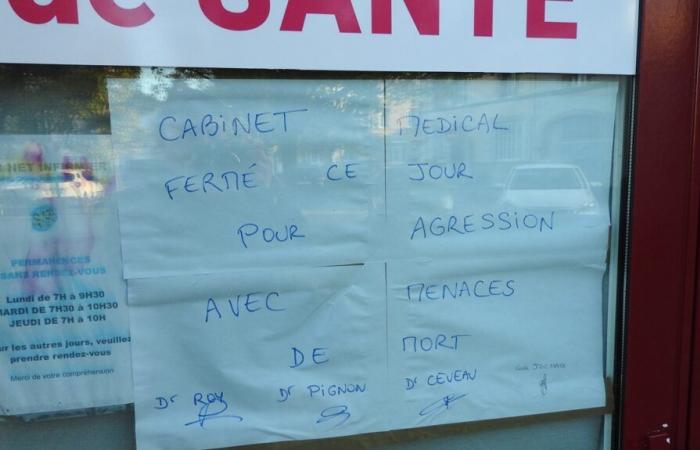 de SANTÉ
CABINET MEDICAL
FERMÉ CE JOUR
POUR AGRESSION
AVEC MENACES
DE MORT
Dr ROY Dr PIGNON Dr CEVEAU
PERMANENCES
SANS RENDEZ-VOUS
Lundi de 7H à 9H30
MARDI DE 7H30 à 10H30
JEUDI DE 7H à 10H
ur les autres jours, veuillez
prendre rendez-vous
Merci de votre compréhension